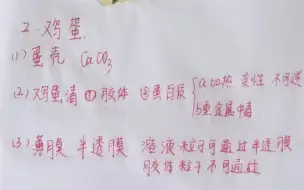 2. 鸡蛋
(1) 蛋壳 CaCO3
(2) 鸡蛋清 ① 胶体 ② 蛋白质 { a加热 变性 不可逆
b重金属中毒
(3) 薄膜 半透膜 溶液粒子可通过半透膜
胶体粒子不可通过